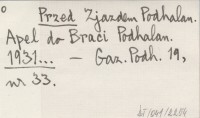 o
Przed Zjazdem Podhalan.
Apel do Braci Podhalan.
1931... – Gaz. Podh. 19,
nr 33.